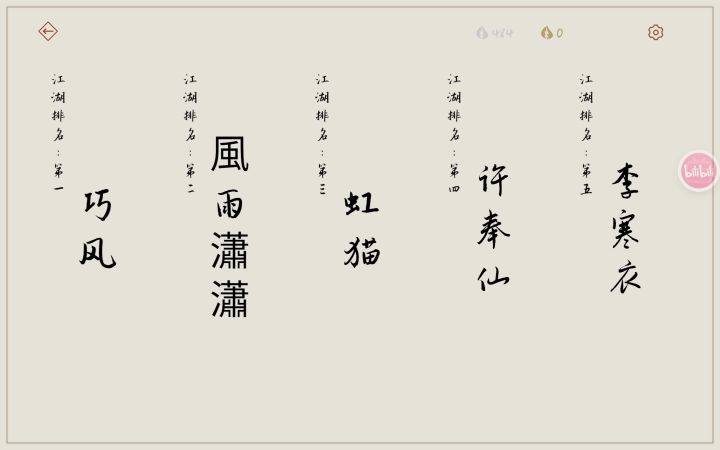 464
0
江湖排名：第一
巧风
江湖排名：第二
風雨瀟瀟
江湖排名：第三
虹猫
江湖排名：第四
许奉仙
江湖排名：第五
李寒衣
bilibili